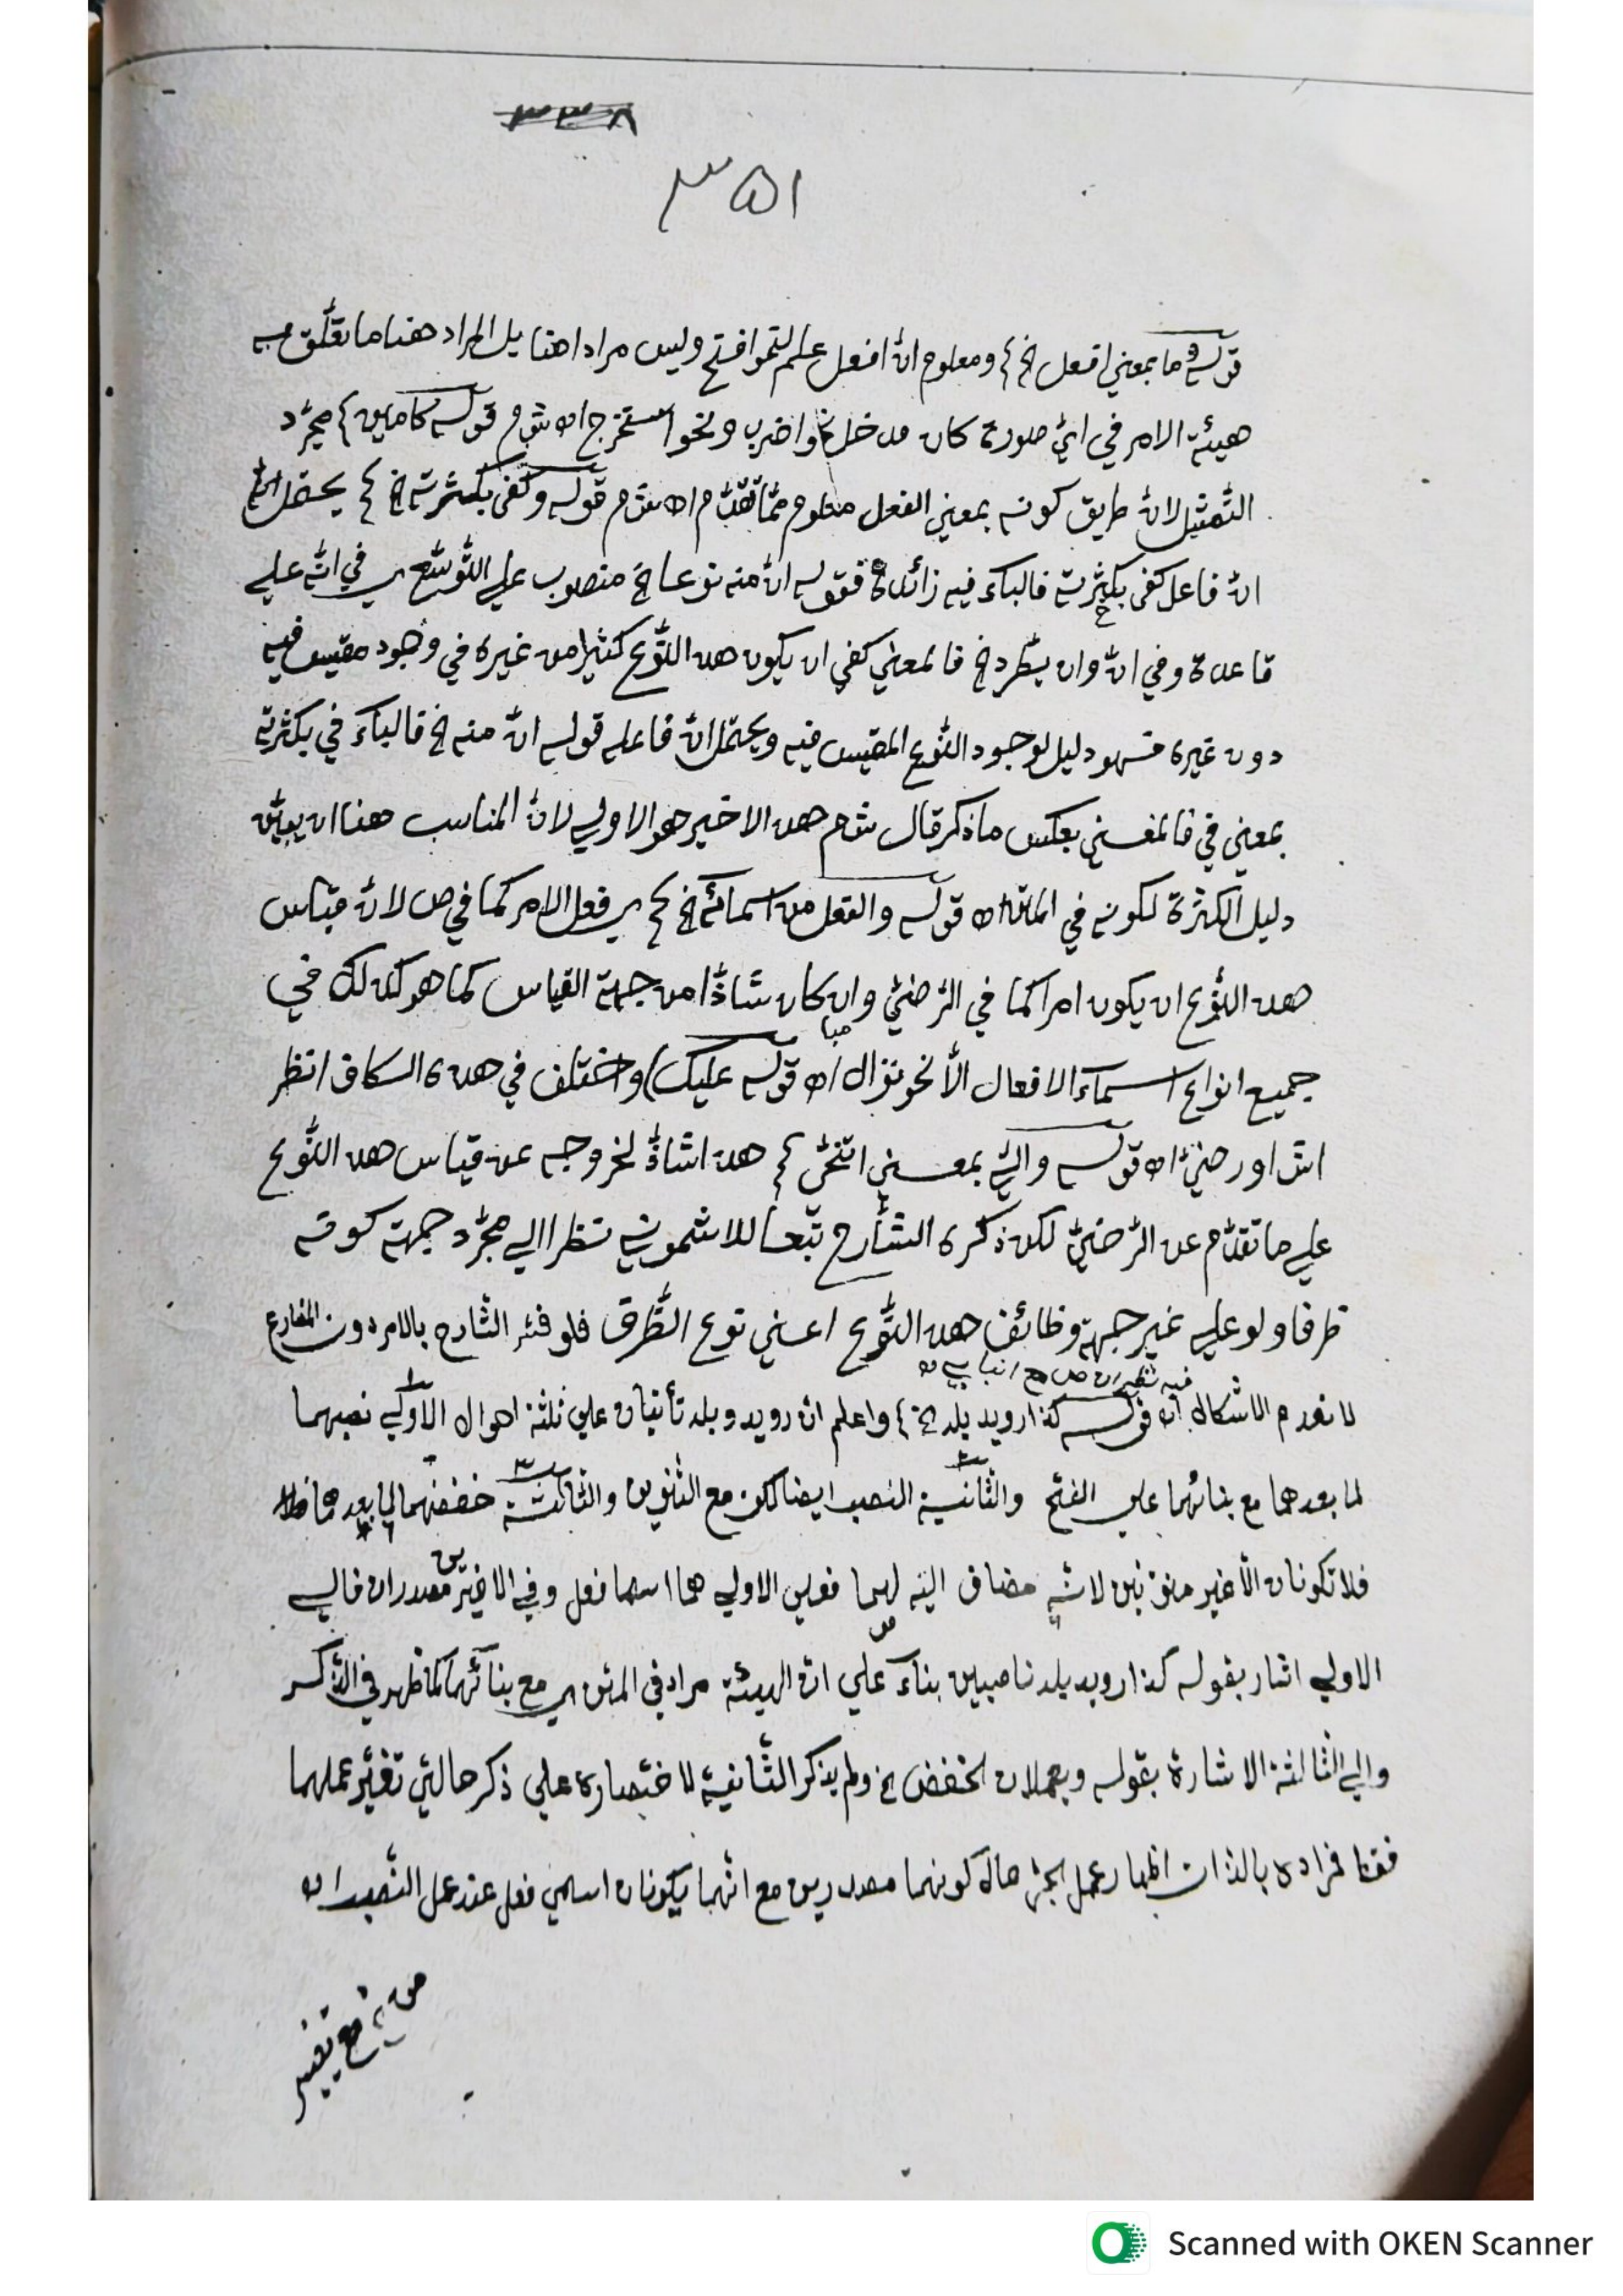 ٣٣٨
٣٥١
قوله وما بمعنى افعل الخ} ومعلوم انّ افعل علم لنحو افتح وليس مرادا هنا بل المراد هنا ما تعلّق به
هيئة الامر في ايّ صورة كان مدخل نحو اضرب ونحو استخرج اه ش م قوله كامين} مجرّد
التّمثيل لانّ طريق كونه بمعنى الفعل معلوم ممّا تقدّم اه ش م قوله وكفى بكثرته الخ} يحتمل
انّ فاعل كفى بكثرته فالباء فيه زائدة فقوله انّ منه نوعا الخ منصوب على التّوسّع اي في انّه على
قاعدة وفي انّ وان يطّرد الخ فالمعنى كفى ان يكون هذا النّوع كثيرا من غيره في وجود مقيس فيه
دون غيره فهو دليل لوجود النّوع المقيس فيه ويحتمل انّ فاعله قوله انّ منه الخ فالباء في بكثرته
بمعنى في فالمعنى بعكس ما ذكر قال ش م هذا الاخير هو الاولى لانّ المناسب هنا ان يعيّن
دليل الكثرة لكونه في المتن اه قوله والفعل من اسمائه الخ} اي فعل الامر كما في ص لانّ قياس
هذا النّوع ان يكون امرا كما في الرّضيّ وان كان شاذّا من جهة القياس كما هو كذلك في
جميع انواع اسماء الافعال الّا نحو نزال اه قوله عليك) واختلف في هذه الكاف انظر
ش او رضيّ اه قوله واليّ بمعنى اتنحّى} هذا شاذّ لخروجه عن قياس هذا النّوع
على ما تقدّم عن الرّضيّ لكن ذكره الشّارح تبعا للاشموني نظرا الى مجرّد جهة كونه
ظرفا ولو على غير جهة وظائف هذا النّوع اعني نوع الظّرف فلو فسّر الشّارح بالامر دون المضارع
فيه
لانعدم الاشكال اه قوله كذا رويد بله الخ} واعلم انّ رويد وبله تأتيان على ثلثة احوال الاولى نصبهما
لما بعدهما مع بنائهما على الفتح والثّانية النصب ايضا لكن مع التّنوين والثّالثة خفضهما لما بعدهما
فلا تكونان الّا غير منوّنين لانّه مضاف اليه لهما فعلى الاولى هما اسما فعل وفي الاخيرين مصدران فالى
الاولى اشار بقوله كذا رويد بله ناصبين بناء على انّ الهيئة مراد في المتن اي مع بنائهما كما ظهر في الذّكر
والى الثّالثة الاشارة بقوله ويعملان الخفض الخ ولم يذكر الثّانية لاختصاره على ذكر حالتي تغيّر عملهما
فقط فمراده بالذّات اظهار عمل الجرّ حال كونهما مصدرين مع انّهما يكونان اسمي فعل عند عمل النّصب اه